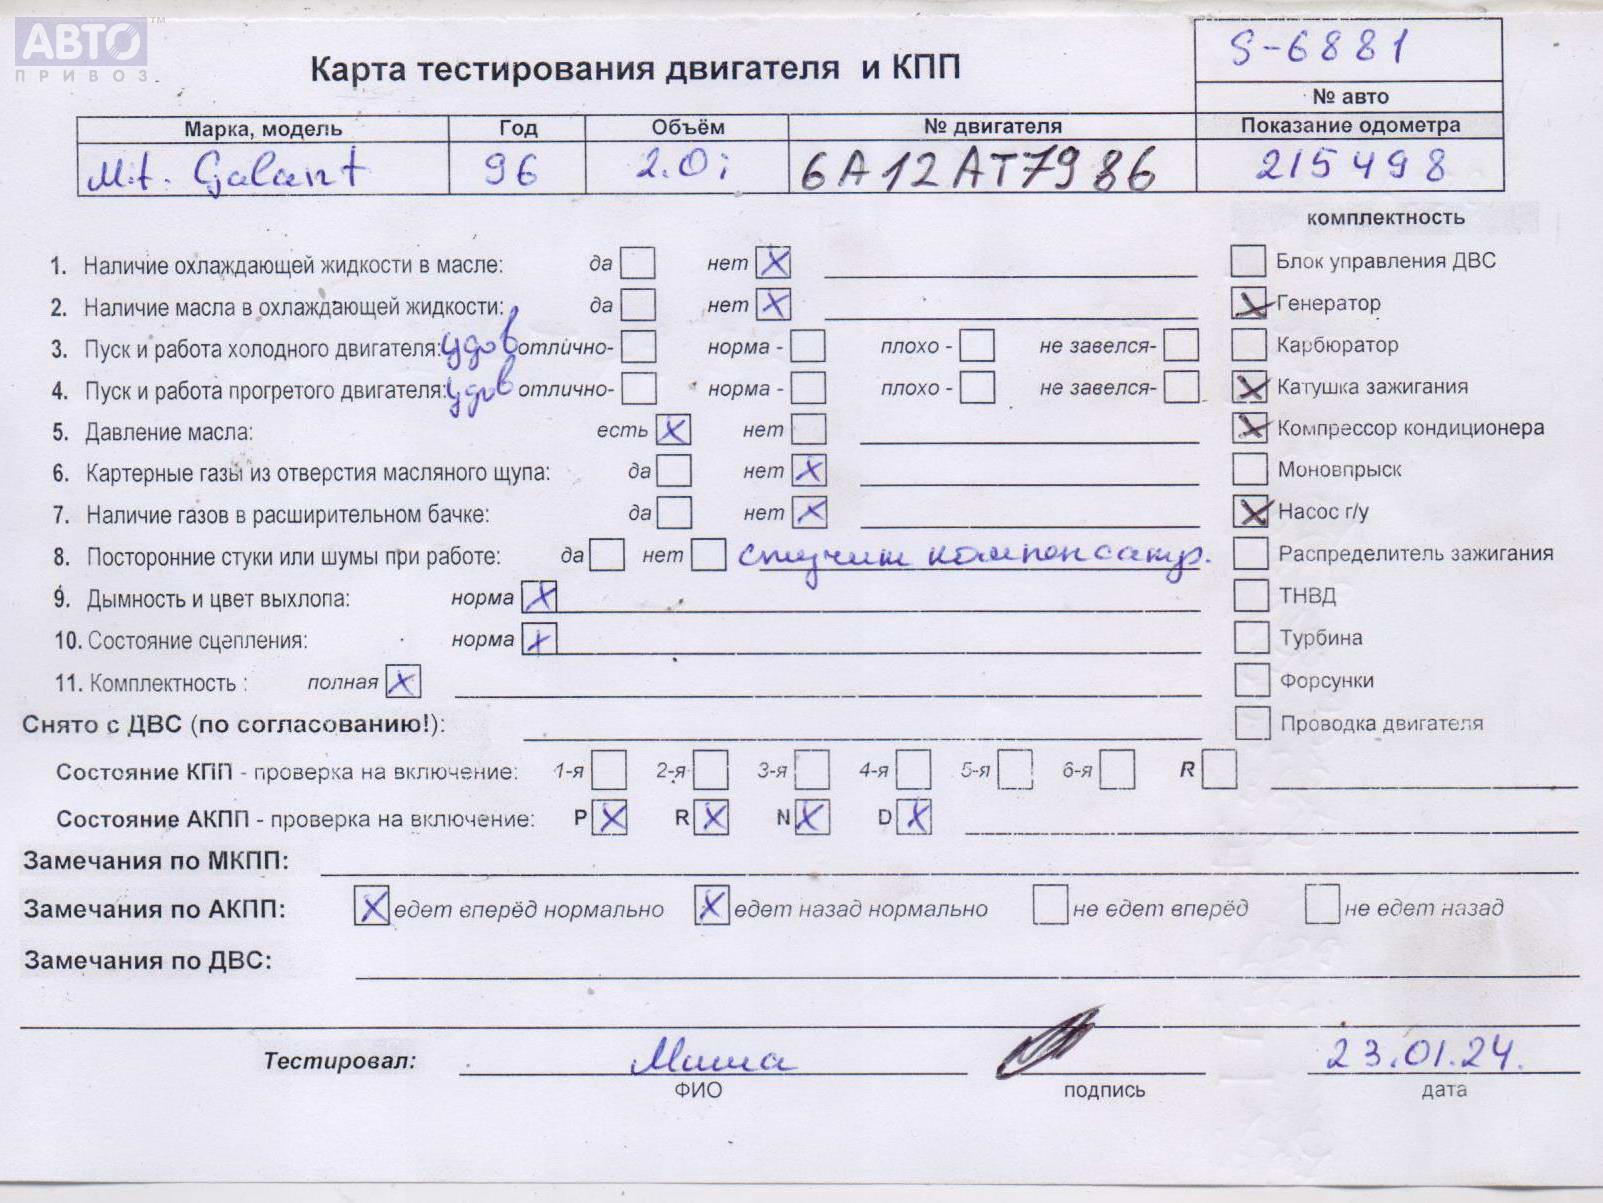 АВТО™
ПРИВОЗ
S-6881
Карта тестирования двигателя и КПП
№ авто
Марка, модель Год Объём № двигателя Показание одометра
M.t. Galant 96 2.0i 6A12AT7986 215498
комплектность
1. Наличие охлаждающей жидкости в масле: да нет X Блок управления ДВС
2. Наличие масла в охлаждающей жидкости: да нет X X Генератор
3. Пуск и работа холодного двигателя: удов отлично- норма - плохо - не завелся- Карбюратор
4. Пуск и работа прогретого двигателя: удов отлично- норма - плохо - не завелся- X Катушка зажигания
5. Давление масла: есть X нет X Компрессор кондиционера
6. Картерные газы из отверстия масляного щупа: да нет X Моновпрыск
7. Наличие газов в расширительном бачке: да нет X X Насос г/у
8. Посторонние стуки или шумы при работе: да нет стучит компенсатр. Распределитель зажигания
9. Дымность и цвет выхлопа: норма X ТНВД
10. Состояние сцепления: норма X Турбина
11. Комплектность : полная X Форсунки
Снято с ДВС (по согласованию!): Проводка двигателя
Состояние КПП - проверка на включение: 1-я 2-я 3-я 4-я 5-я 6-я R
Состояние АКПП - проверка на включение: P X R X N X D X
Замечания по МКПП:
Замечания по АКПП: X едет вперёд нормально X едет назад нормально не едет вперёд не едет назад
Замечания по ДВС:
Тестировал: Миша 23.01.24.
ФИО подпись дата